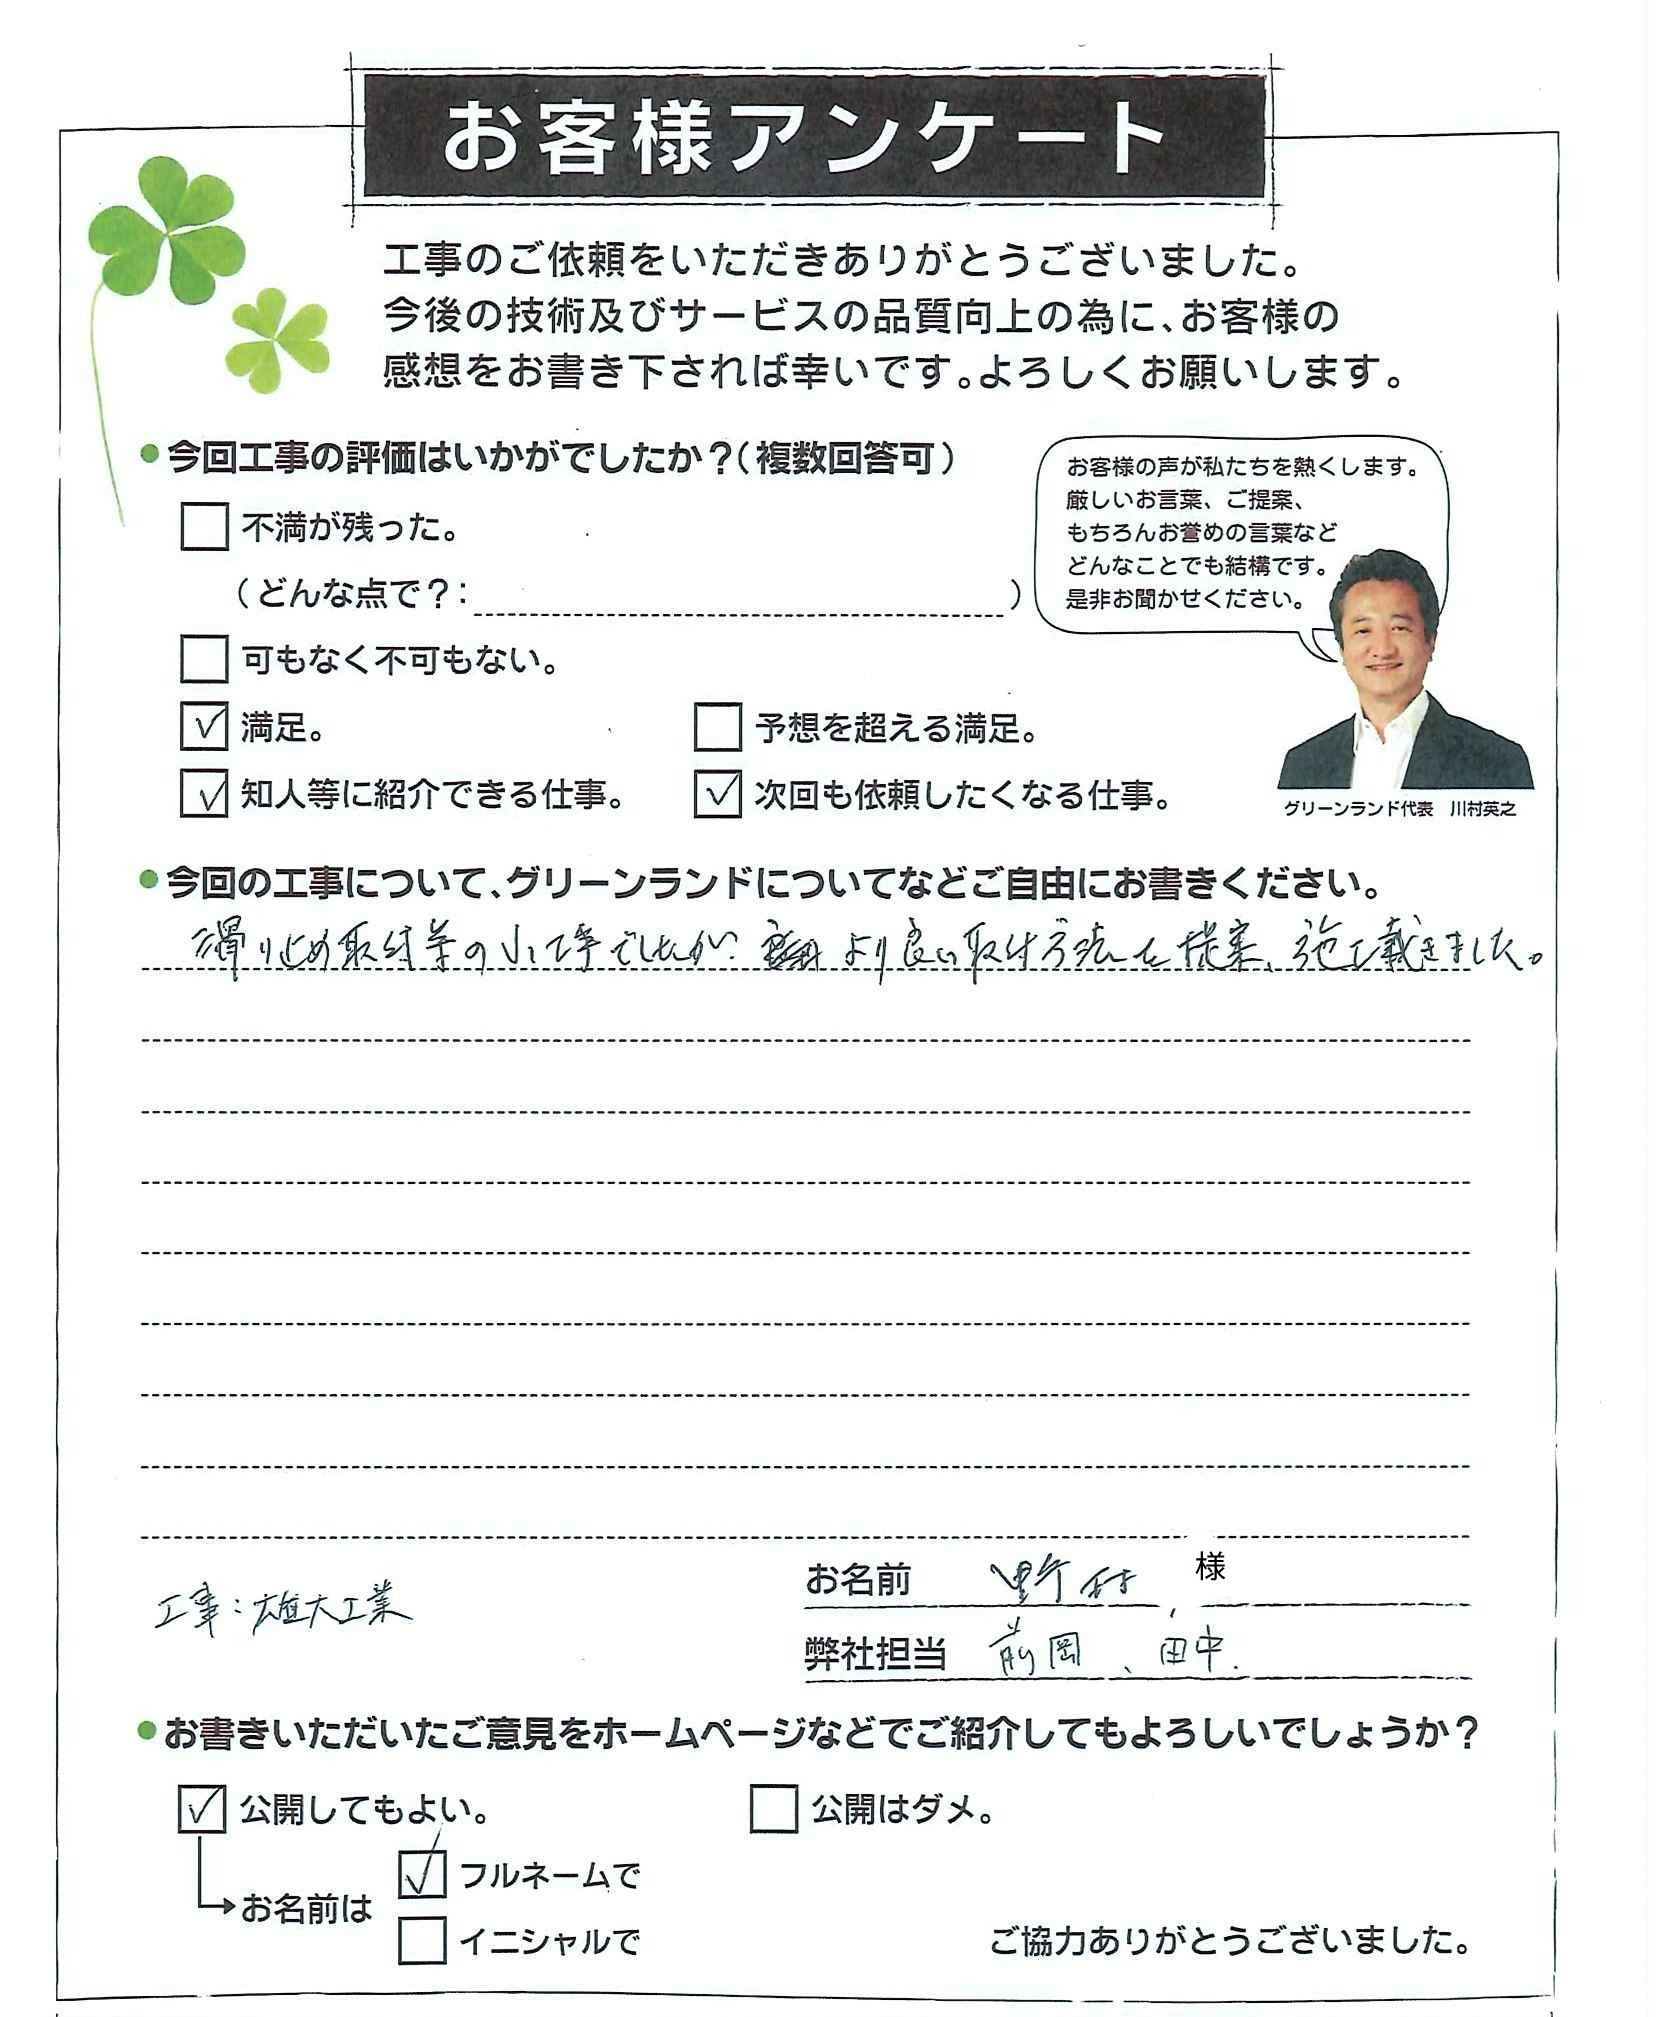 お客様アンケート
工事のご依頼をいただきありがとうございました。
今後の技術及びサービスの品質向上の為に、お客様の
感想をお書き下されば幸いです。よろしくお願いします。
●今回工事の評価はいかがでしたか？（複数回答可）
お客様の声が私たちを熱くします。
厳しいお言葉、ご提案、
もちろんお誉めの言葉など
どんなことでも結構です。
是非お聞かせください。
不満が残った。
（どんな点で？：　）
可もなく不可もない。
満足。
予想を超える満足。
知人等に紹介できる仕事。
次回も依頼したくなる仕事。
グリーンランド代表　川村英之
●今回の工事について、グリーンランドについてなどご自由にお書きください。
滑り止め取付等の小工事でしたが、より良い取付方法を提案、施工戴きました。
お名前　野村　様
工事：雄大工業
弊社担当　前岡、田中
●お書きいただいたご意見をホームページなどでご紹介してもよろしいでしょうか？
公開してもよい。
公開はダメ。
お名前は
フルネームで
イニシャルで
ご協力ありがとうございました。